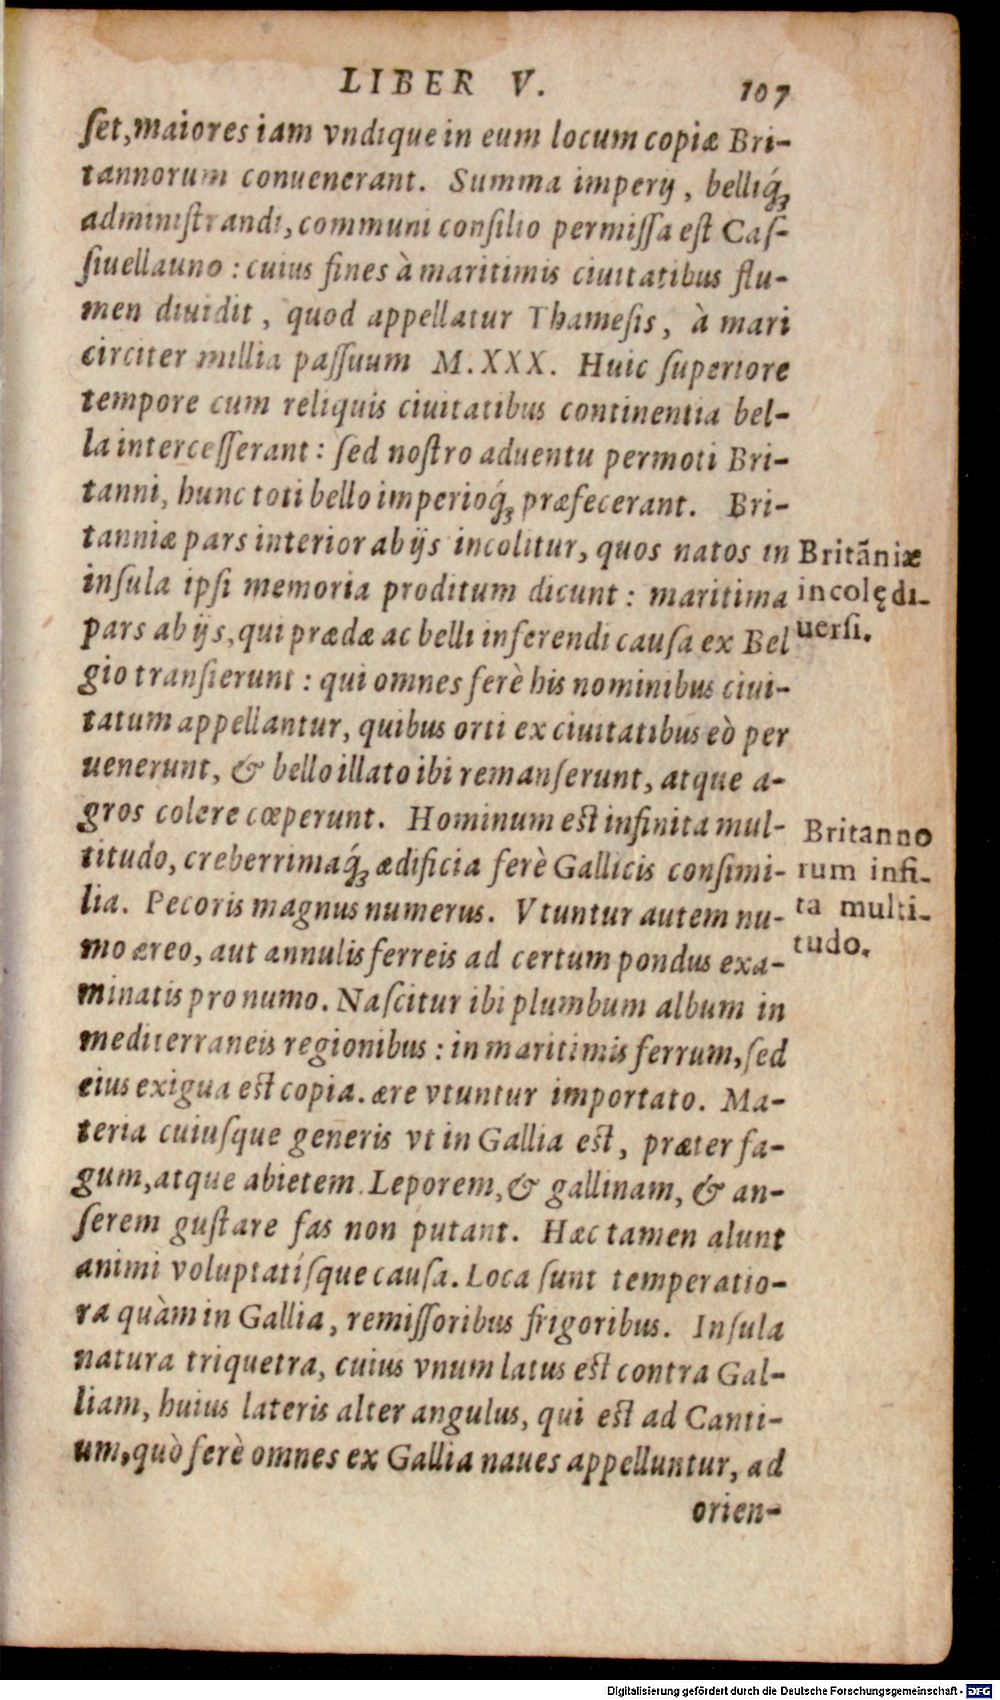 LIBER V. 107
ſet, maiores iam vndique in eum locum copiæ Bri-
tannorum conuenerant. Summa imperij, belliq́;
adminiſtrandi, communi conſilio permiſſa eſt Caſ-
ſiuellauno : cuius fines à maritimis ciuitatibus flu-
men diuidit, quod appellatur Thameſis, à mari
circiter millia paſſuum M. XXX. Huic ſuperiore
tempore cum reliquis ciuitatibus continentia bel-
la interceſſerant : ſed noſtro aduentu permoti Bri-
tanni, hunc toti bello imperioq́; præfecerant. Bri-
tanniæ pars interior ab ijs incolitur, quos natos in
inſula ipſi memoria proditum dicunt : maritima
pars ab ijs, qui prædæ ac belli inferendi cauſa ex Bel
gio tranſierunt : qui omnes ferè his nominibus ciui-
tatum appellantur, quibus orti ex ciuitatibus eò per
uenerunt, & bello illato ibi remanſerunt, atque a-
gros colere cœperunt. Hominum eſt infinita mul-
titudo, creberrimaq́; ædificia ferè Gallicis conſimi-
lia. Pecoris magnus numerus. Vtuntur autem nu-
mo æreo, aut annulis ferreis ad certum pondus exa-
minatis pro numo. Naſcitur ibi plumbum album in
mediterraneis regionibus : in maritimis ferrum, ſed
eius exigua eſt copia. ære vtuntur importato. Ma-
teria cuiuſque generis vt in Gallia eſt, præter fa-
gum, atque abietem. Leporem, & gallinam, & an-
ſerem guſtare fas non putant. Hæc tamen alunt
animi voluptatíſque cauſa. Loca ſunt temperatio-
ra quàm in Gallia, remiſſoribus frigoribus. Inſula
natura triquetra, cuius vnum latus eſt contra Gal-
liam, huius lateris alter angulus, qui eſt ad Canti-
um, quò ferè omnes ex Gallia naues appelluntur, ad
orien-
Britāniæ
incolę di-
uerſi.
Britanno
rum infi-
ta multi-
tudo.
Digitalisierung gefördert durch die Deutsche Forschungsgemeinschaft - DFG